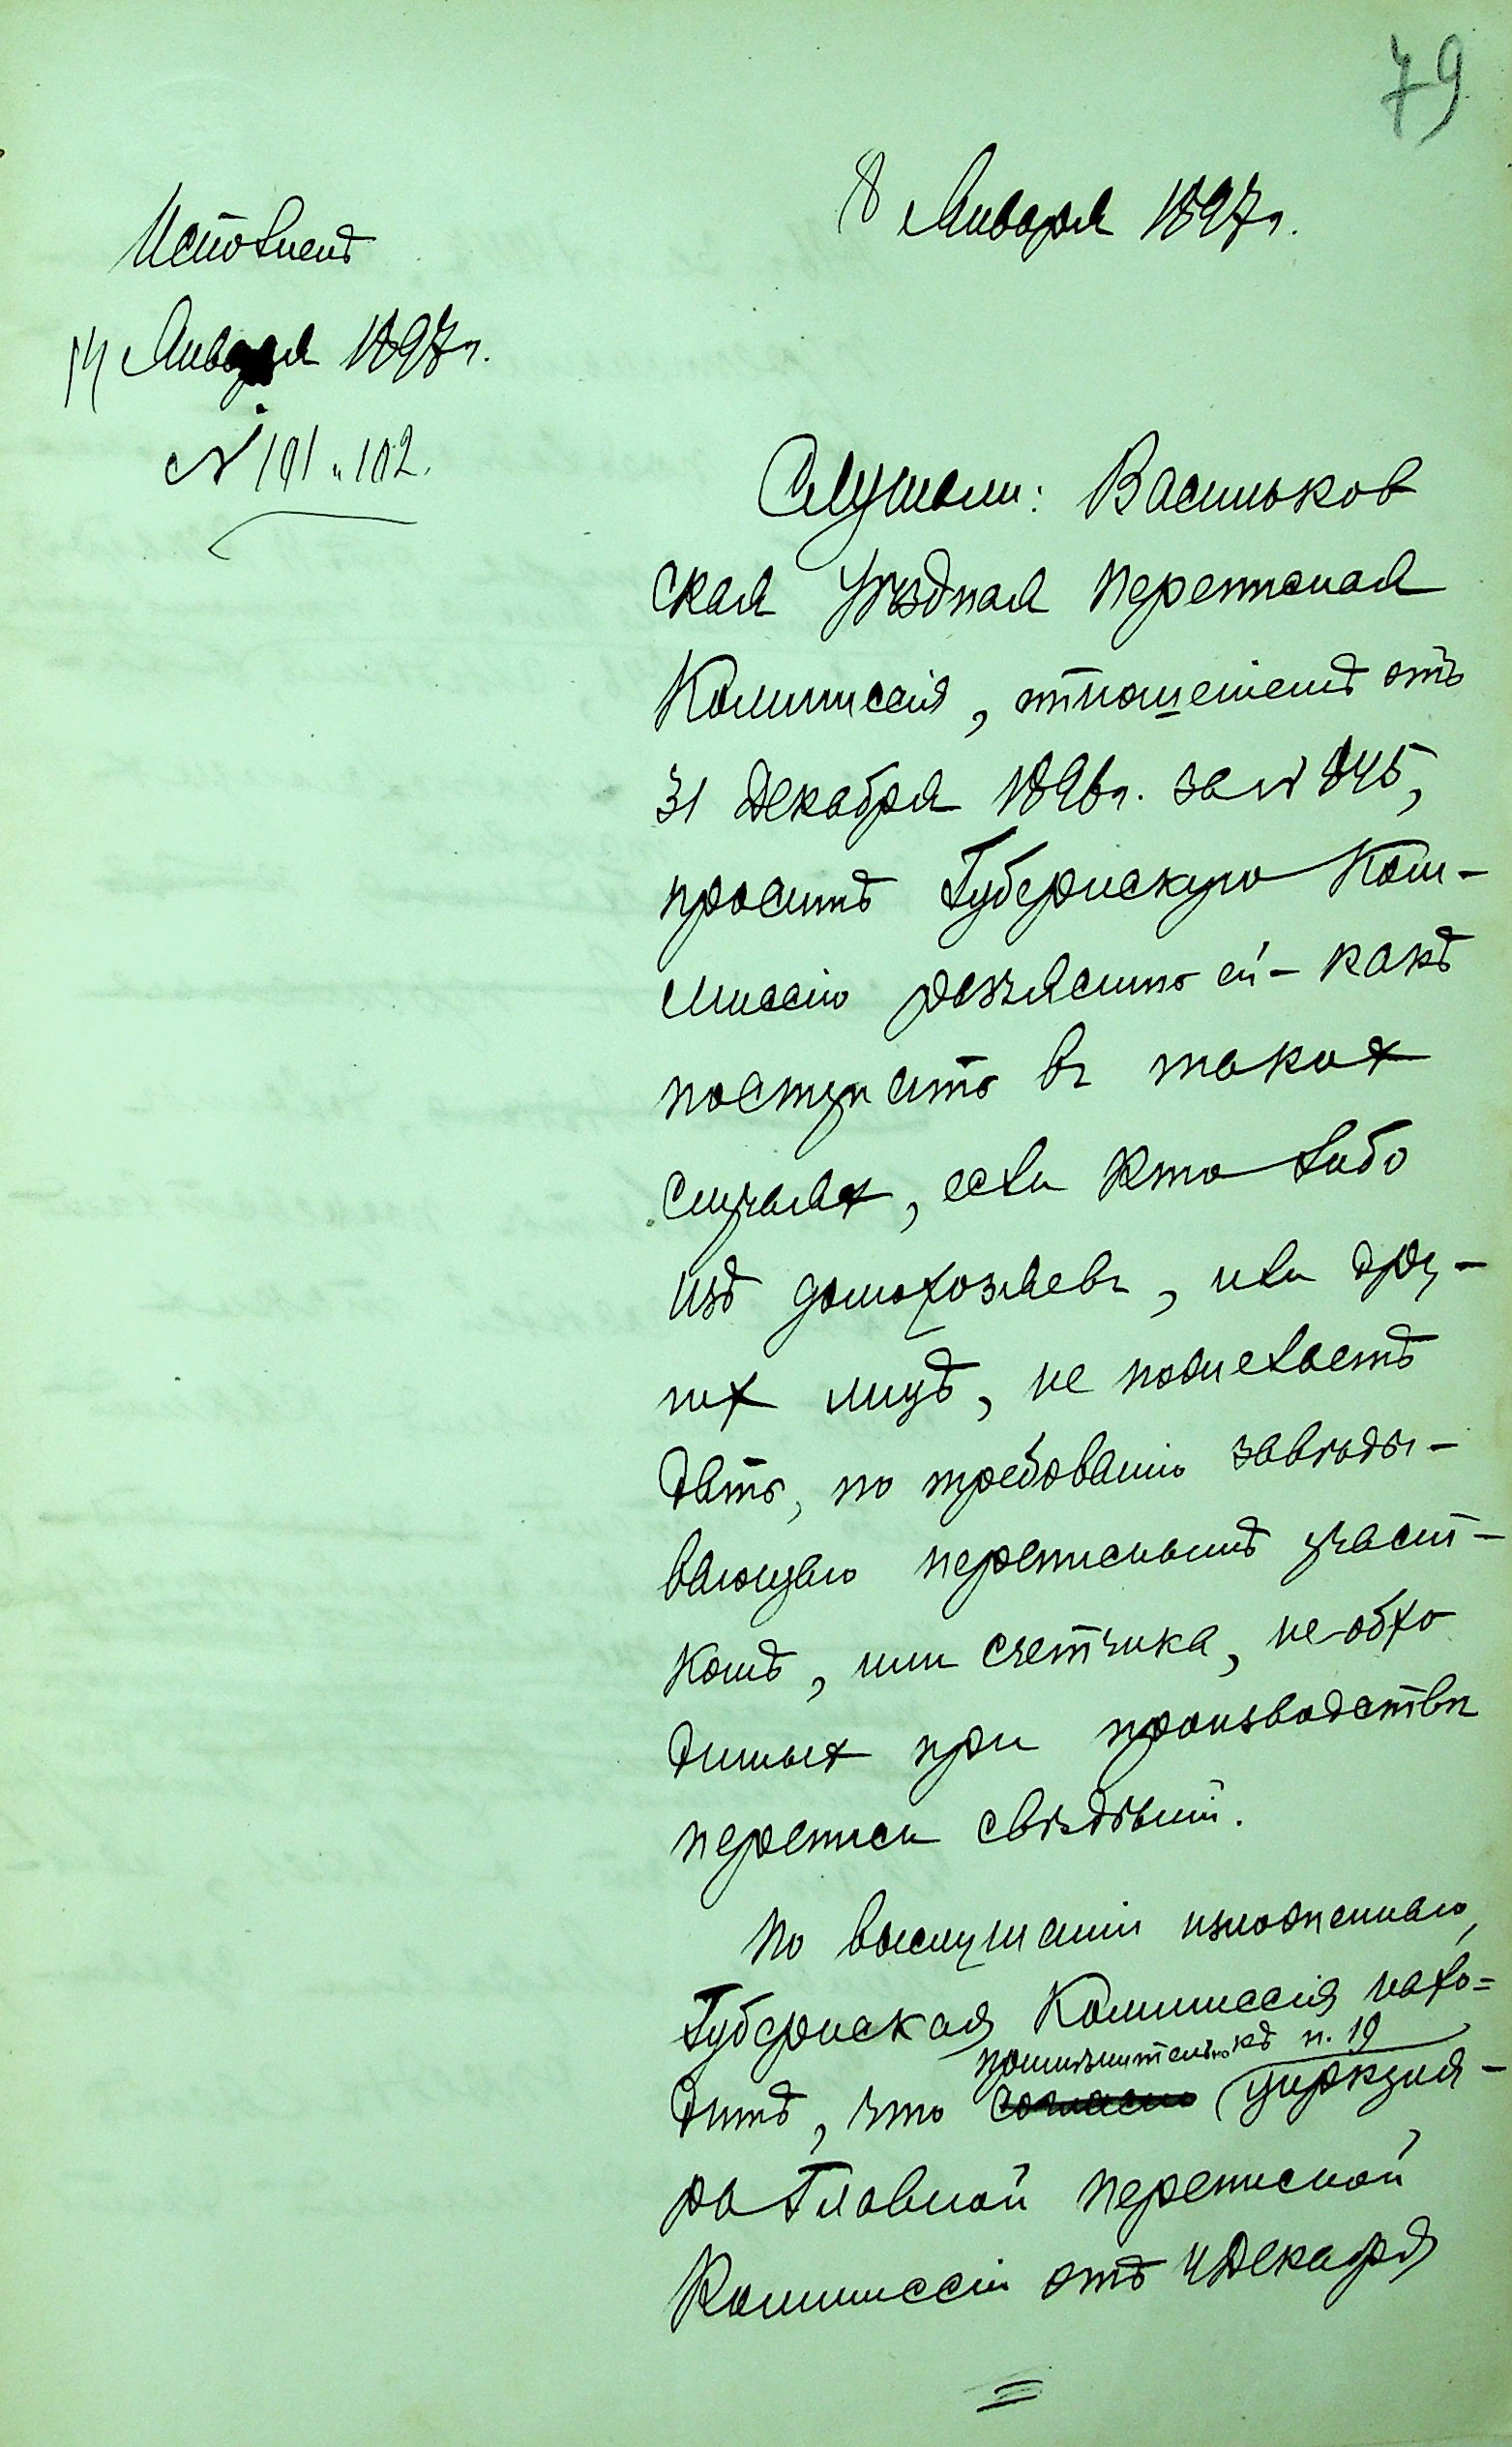 79
8 Января 1897 г.
Исполнено
14 Января 1897 г.
№ 101 и 102.
Слушали: Васильков
ская Уѣздная Переписная
Коммиссія, отношеніемъ отъ
31 Декабря 1896 г. за № 845,
проситъ Губернскую Ком-
миссію разъяснить ей - какъ
поступить въ такихъ
случаяхъ, если кто либо
изъ домохозяевъ, или дру-
гихъ лицъ, не пожелаетъ
дать, по требованію завѣды-
вающаго переписнымъ участ-
комъ, или счетчика, необхо
димыхъ при производствѣ
переписи свѣдѣній.
По выслушаніи изложеннаго,
Губернская Коммиссія нахо=
примѣнительно къ п. 19
дитъ, что согласно циркуля-
ра Главной Переписной
Коммиссіи отъ 4 Декабря